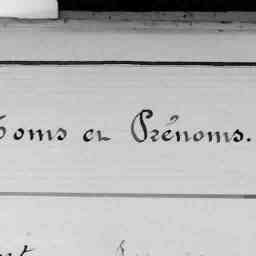 Noms et Prénoms.